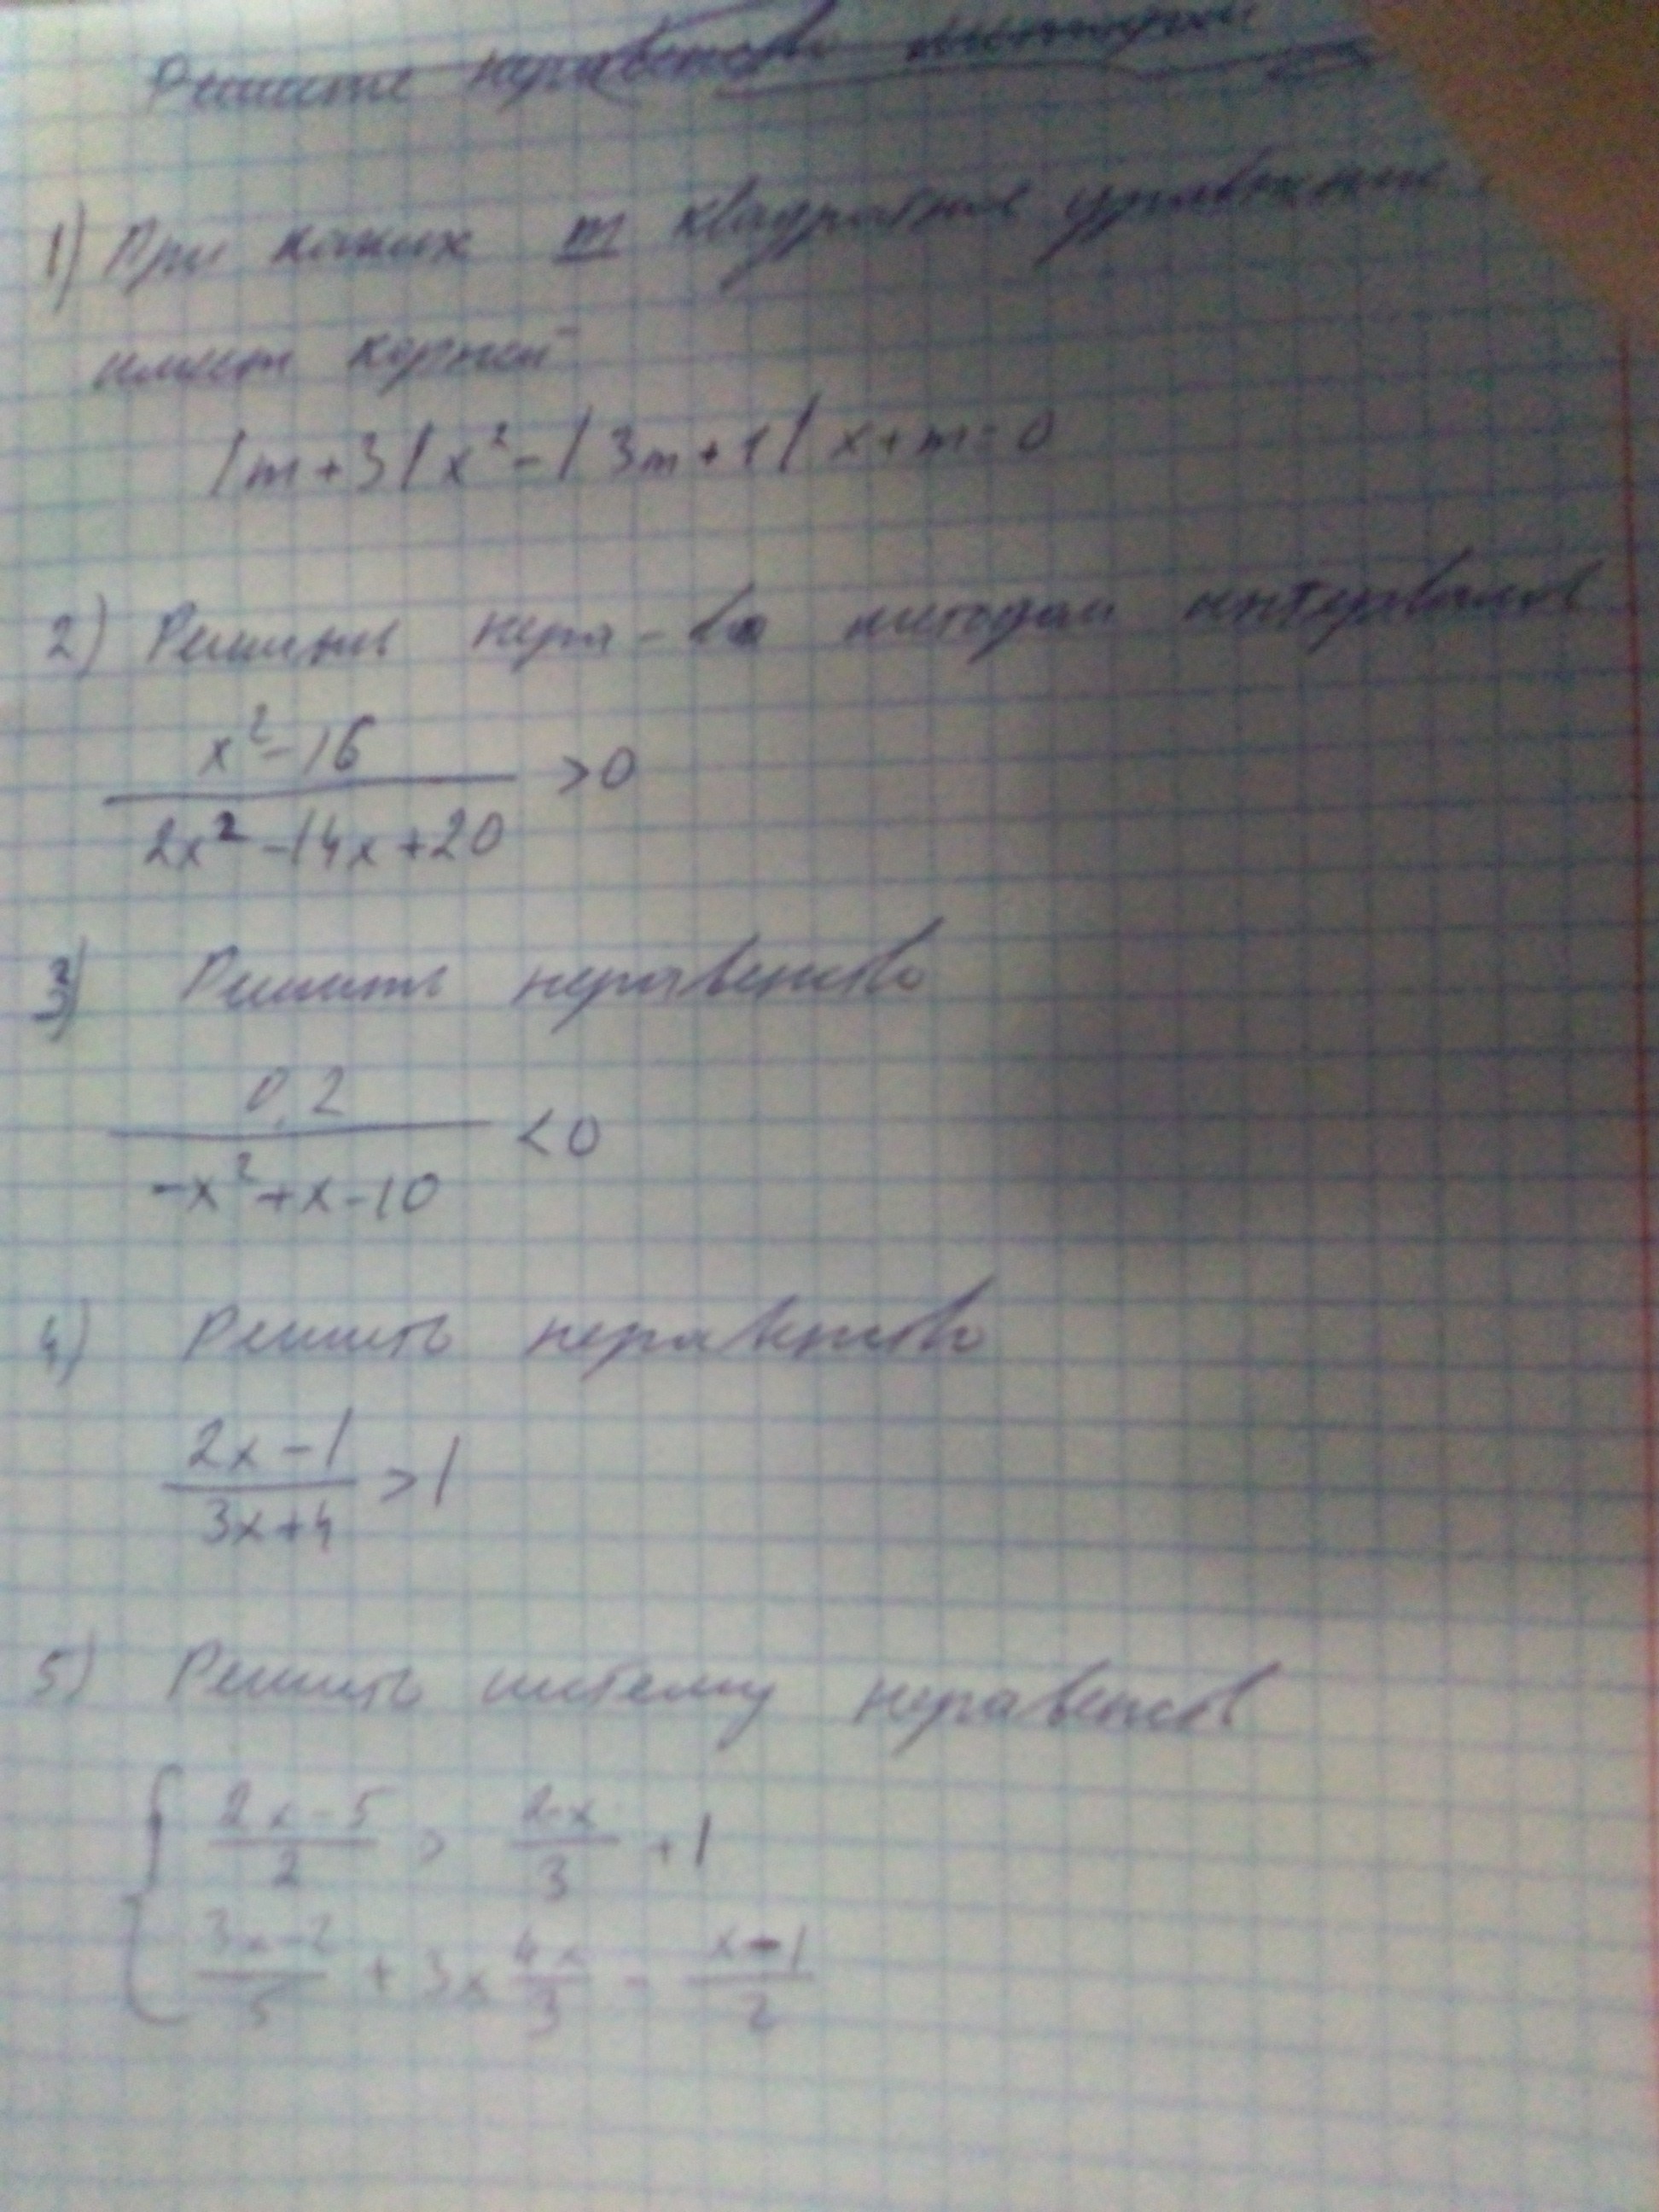 Решите неравенство методом
1) При каких m квадратное уравнение
имеет корней
|m+3|x²-|3m+1|x+m=0
2) Решить нера-ва методом интервалов
x²-16
2x²-14x+20 >0
3) Решить неравенство
0,2
-x²+x-10 <0
4) Решить неравенство
2x-1
3x+4 >1
5) Решить систему неравенств
2x-5 / 2 > 2-x / 3 +1
3x-2 / 5 + 3x 4x / 3 - x-1 / 2